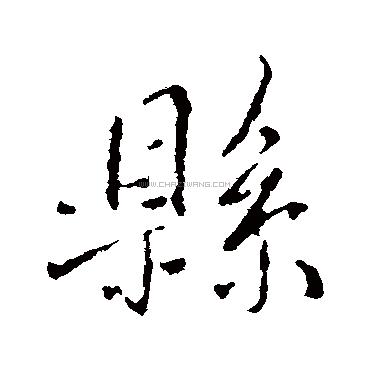 縣
WWW.CHAZIWANG.COM